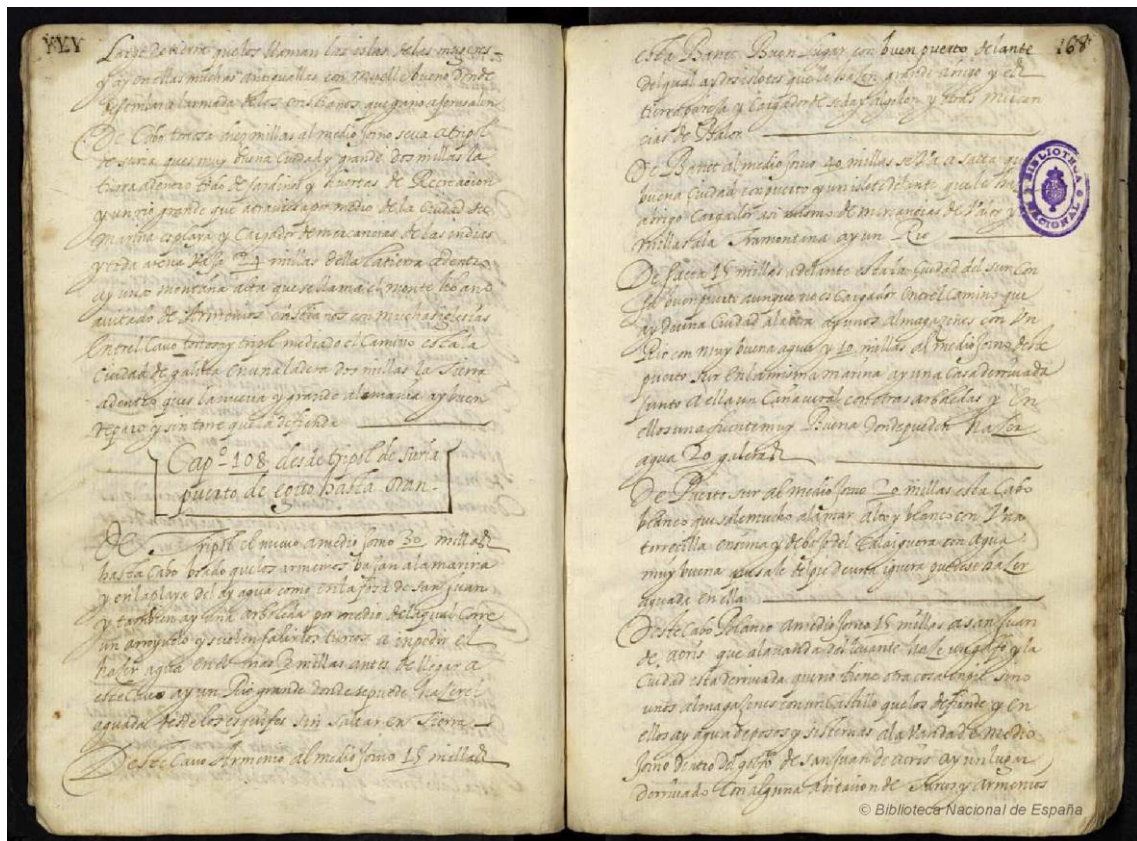 XXX
Large de tierra que los llaman las islas de las
y ay en ellas muchas antiguallas con muelle bueno donde
el armada de los cristianos que
De Cabo tortosa diez millas al medio jorno se va a tripol
de suria ques muy buena ciudad y grande dos millas la
tierra adentro todo de jardines y huertas de Recreacion
y un rio grande que atraviesa por medio de la Ciudad su
marina es playa y Cargador de mercancias de las indias
y toda 24 millas della la tierra adentro
ay una montaña alta que se llama el monte
avitado de Armenios cristianos con muchas iglesias
Entrel Cavo tortosa y tripol mediado el Camino esta la
Ciudad de en una ladera dos millas la tierra
adentro ques la nueva y grande ay buen
reparo y sin torre que la defienda
Capº 108 desde tripol de Suria
puerto de egito hasta oran
De Tripol el nuevo a medio jorno 30 millas
hasta Cabo que los armenios bajan a la marina
y en la playa del ay agua como en la fosa de san Juan
y tambien ay una arbleda por medio de la qual Corre
un arroyuelo y suelen salir los turcos a inpedir el
haser agua en el mas 2 millas antes de llegar a
este Cavo ay un Rio grande donde se puede haser el
aguada desde los esquifes sin saltar en tierra
Deste Cavo Armenio al medio jorno 15 millas
168
esta Barut Buen lugar con buen puerto delante
del qual ay dos islotes que le hasen grande abrigo y es
tierra y Cargador de seda y algodon y otras mercan
cias de
De Barut al medio jorno 40 millas se va a saeta
buena Ciudad con puerto y un islote delante que le
abrigo Cargador asi mismo de mercancias de y
millas a la Tramontana ay un Rio
De saeta 15 millas adelante esta la Ciudad del sur con
buen puerto aunque no es Cargador Entrel Camino que
ay de una Ciudad a la otra ay unos almagazenes con Un
Rio con muy buena agua y 10 millas al medio jorno deste
puerto sur en la misma marina ay una Casa derruvada
junto a ella un Cañaveral con otras arboledas y En
ellos una fuente muy Buena donde pueden haser
agua 20 galeras
De Puerto sur al medio jorno 20 millas esta Cabo
blanco que sale mucho a la mar alto y blanco con Una
torrecilla ensima y debajo del con agua
muy buena que sale de puedese haser
aguada en ella
Deste Cabo Blanco a medio jorno 15 millas a san Juan
de acris que a la vanda del levante hase un golfo y la
Ciudad esta derruvada que no tiene otra cosa sino
unos almagasenes con un Castillo que los defiende y en
ellos ay agua de posos y sisternas a la vanda de medio
jorno dentro del golfo de san Juan de acris ay un lugar
derruvado Con alguna abitacion de Turcos y armenios
BIBLIOTECA NACIONAL
© Biblioteca Nacional de España